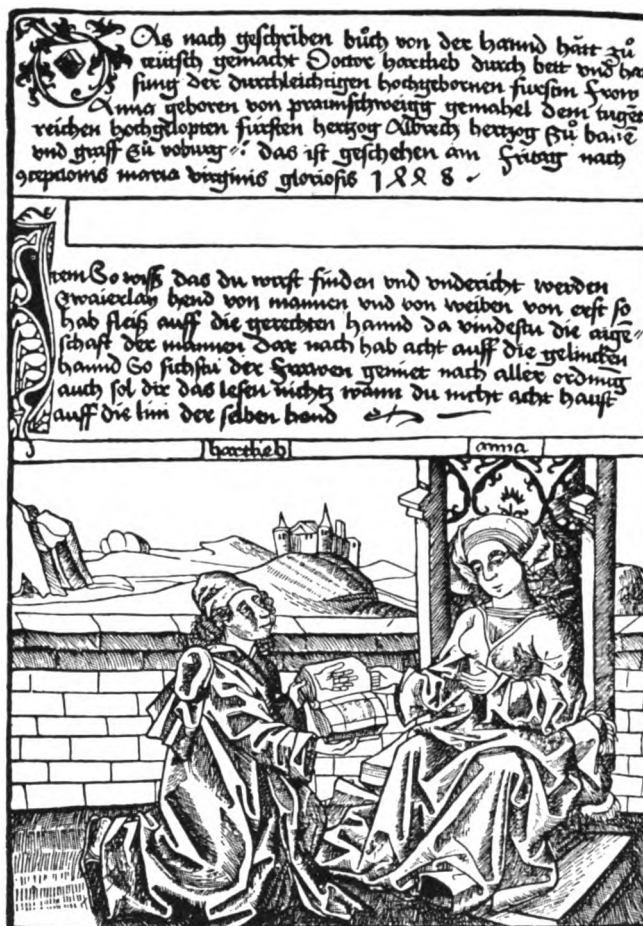 Das nach geschriben bůch von der hannd hätt zů
teütsch gemacht Doctor hartlieb durch bett vnd ha
sung der durchleichtigen hochgebornen fürstin frow
Anna geboren von praunschweigg gemahel dem tugent
reichen hochgelopten fürsten hertzog Albrech hertzog zů baire
vnd graff zů voburg das ist geschehen am fritag nach
conceptionis maria virginis gloriosis 1448 .
Item So wiss das du wirst finden vnd vndericht werden
Zwaierlay hend von mannen vnd von weiben von erst so
hab fleiß auff die gerechten hannd da vindestu die aige-
schafft der mannen Dar nach hab acht auff die gelincken
hannd So sichstu der frawen geniet nach aller ordnug
auch sol dir das lesen nichtz wann du nicht acht haust
auff die lini der selben hend
hartlieb
anna